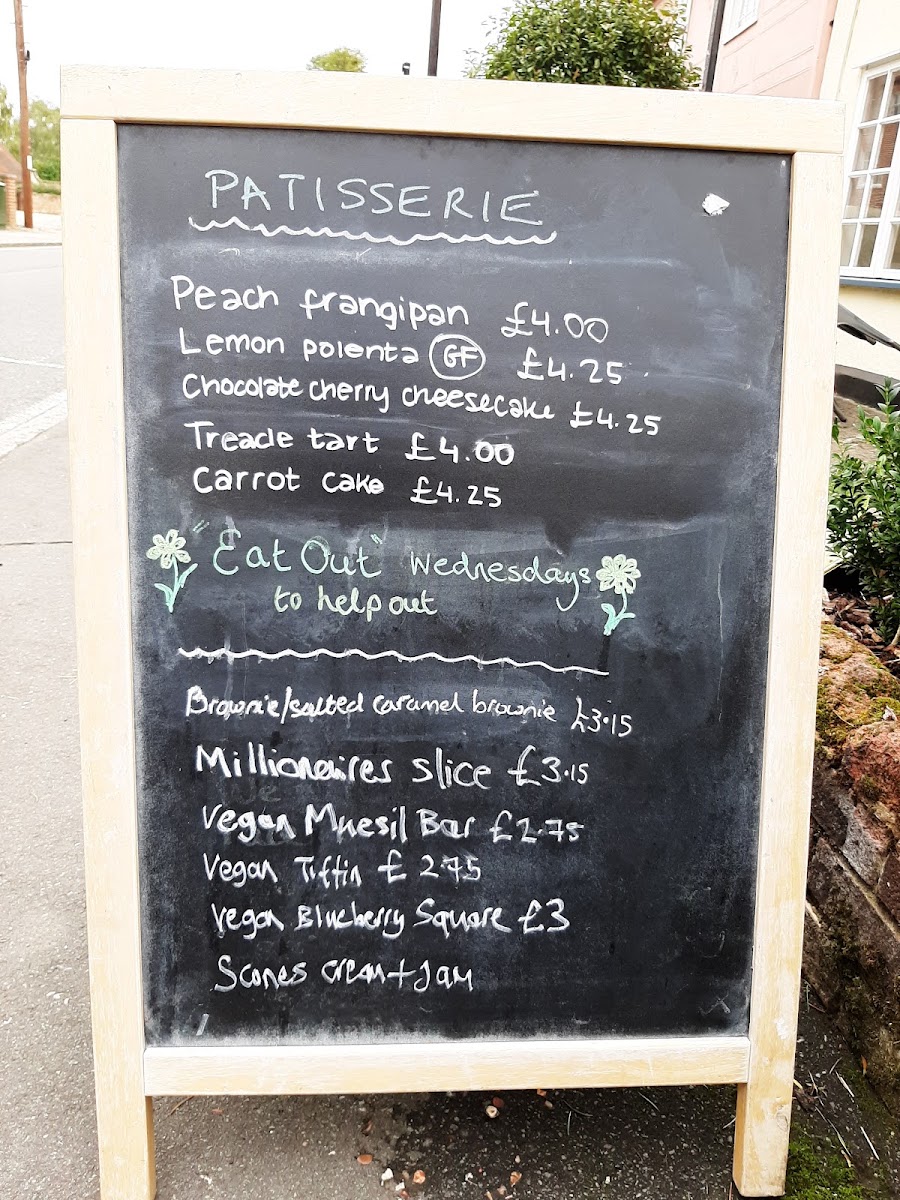 PATISSERIE
Peach frangipan £4.00
Lemon polenta GF £4.25
Chocolate cherry cheesecake £4.25
Treacle tart £4.00
Carrot cake £4.25
"Eat Out" Wednesdays
to help out
Brownie/salted caramel brownie £3.15
Millionaires slice £3.15
Vegan Muesil Bar £2.75
Vegan Tiffin £2.75
Vegan Blueberry Square £3
Scones cream + Jam